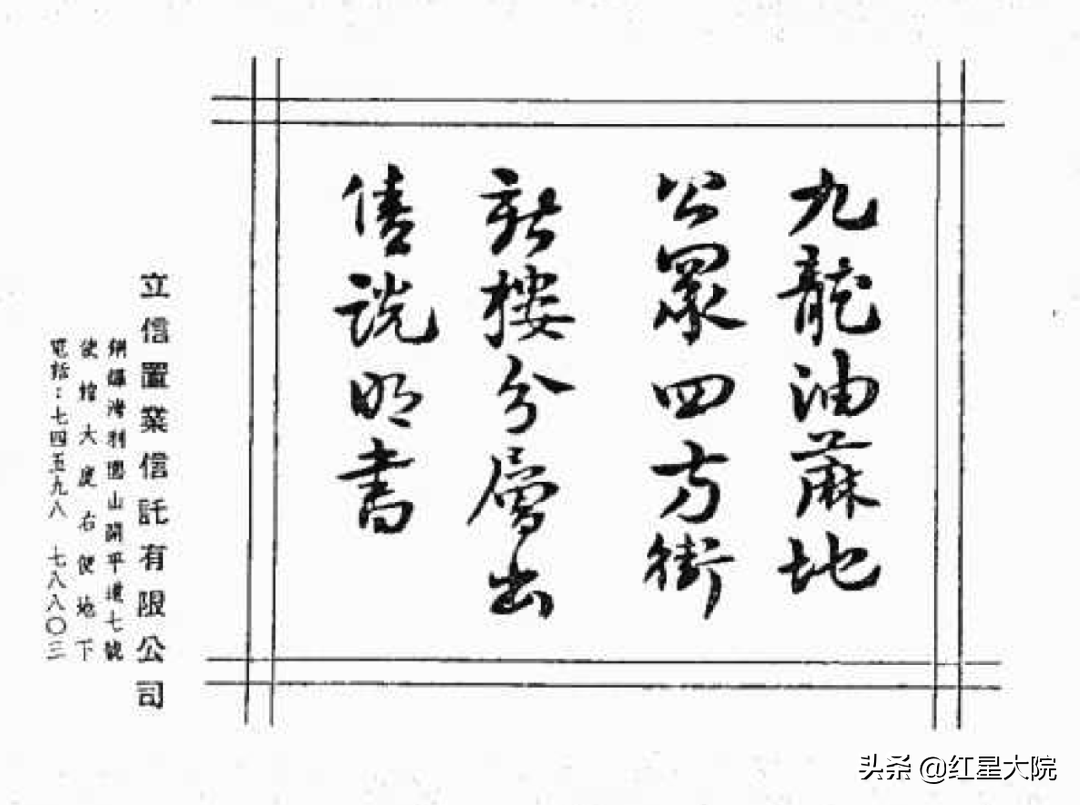 九龍油蔴地
公眾四方街
新樓分層出
售說明書
立信置業信託有限公司
銅鑼灣利園山開平道七號
使館大廈右便地下
電話：七四五九八 七八八〇三
头条 @红星大院